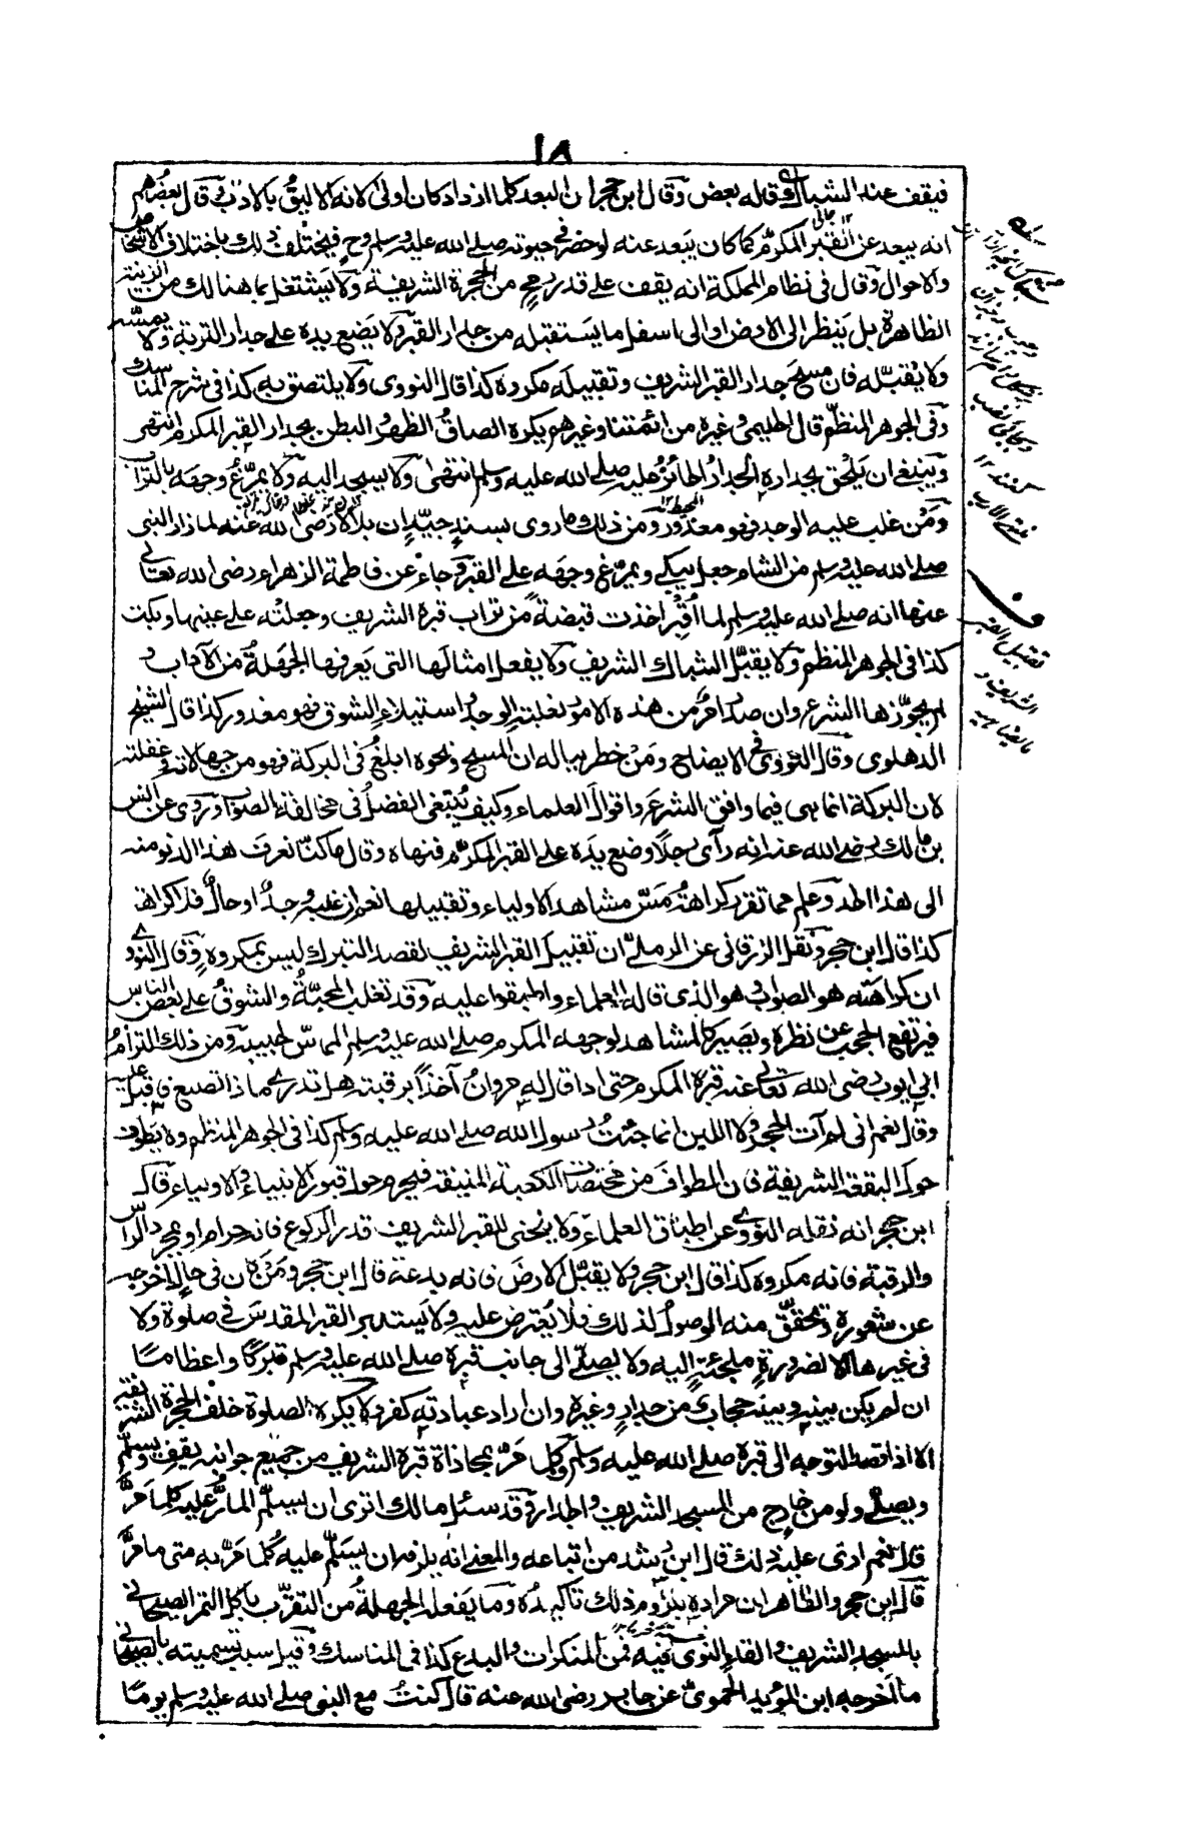 ١٨
فيقف عند الشباك قاله بعض وقال ابن حجر ان البعد كلما ازداد كان اولى لانه الاليق بالادب قال بعضهم
انه يبعد عن القبر المكرم كما كان يبعد عنه لو حضر في حيوته صلى الله عليه وسلم وح فيختلف ذلك باختلاف الاشخاص
والاحوال وقال في نظام المملكة انه يقف على قدر رمح من الحجرة الشريفة ولا يشتغل بما هنالك من الزينة
الظاهرة بل ينظر الى الارض او الى اسفل ما يستقبله من جدار القبر ولا يضع يده على جدار التربة ولا يمسه
ولا يقبله فان مسح جدار القبر الشريف وتقبيله مكروه كذا قال النووى ولا يلتصق به كذا فى شرح المناسك
وفى الجوهر المنظم قال الحليمى وغيره من ائمتنا وغيرهم يكره الصاق الظهر والبطن بجدار القبر المكرم انتهى
وينبغى ان يلحق بجداره الجدار الحائز عليه صلى الله عليه وسلم انتهى ولا يسجد اليه ولا يمرغ وجهه بالتراب
ومن غلب عليه الوجد فهو معذور ومن ذلك ما روى بسند جيد ان بلالا رضى الله عنه لما زار النبى
صلى الله عليه وسلم من الشام جعل يبكى ويمرغ وجهه على القبر وجاء عن فاطمة الزهراء رضى الله تعالى
عنها انه صلى الله عليه وسلم لما اقبر اخذت قبضة من تراب قبره الشريف وجعلته على عينها وبكت
كذا فى الجوهر المنظم ولا يقبل الشباك الشريف ولا يفعل امثالها التى يعرفها الجهلة من الآداب و
لم يجوزها الشرع وان صدر امر من هذه الامور لغلبة الوجد واستيلاء الشوق فهو معذور كذا قال الشيخ
الدهلوى وقال النووى فى الايضاح ومن خطر بباله ان المسح ونحوه ابلغ فى البركة فهو من جهالاته وغفلته
لان البركة انما هى فيما وافق الشرع واقوال العلماء وكيف يبتغى الفضل فى مخالفة الصواب وروى عن انس
بن مالك رضى الله عنه انه رآى رجلا وضع يده على القبر المكرم فنهاه وقال ما كنا نعرف هذا الدنو منه
الى هذا الحد وعلم مما تقرر كراهة مس مشاهد الاولياء وتقبيلها نعم ان غلبه وجد او حال فلا كراهة
كذا قال ابن حجر ونقل الزرقانى عن الرملى ان تقبيل القبر الشريف لقصد التبرك ليس بمكروه وقال النووى
ان كراهته هو الصواب وهو الذى قاله العلماء واطبقوا عليه وقد تغلب المحبة والشوق على بعض الناس
فيرتفع الحجب عن نظره ويصير كالمشاهد لوجهه المكرم صلى الله عليه وسلم المماس لحبيبه ومن ذلك التزام
ابى ايوب رضى الله تعالى عنه قبره المكرم حتى اذا قال له مروان آخذا برقبته هل تدرى ماذا تصنع فاقبل عليه
وقال نعم انى لم آت الحجر ولا اللبن انما جئت رسول الله صلى الله عليه وسلم كذا فى الجوهر المنظم ولا يطوف
حول البقعة الشريفة فان الطواف من مختصات الكعبة المنيفة فيحرم حول قبور الانبياء والاولياء قال
ابن حجر انه نقله النووى عن اطباق العلماء ولا ينحنى للقبر الشريف قدر الركوع فانه حرام او بمجرد الراس
والرقبة فانه مكروه كذا قال ابن حجر ولا يقبل الارض فانه بدعة قال ابن حجر ومن كان فى حال اخرجه
عن شعوره وتحقق منه الوصول لذلك فلا يعترض عليه ولا يستدبر القبر المقدس فى صلوة ولا
فى غيرها الا لضرورة ملجئة اليه ولا يصلى الى جانب قبره صلى الله عليه وسلم تبركا واعظاما
ان لم يكن بينه وبينه حجاب من جدار وغيره وان اراد عبادته كفر ولا يكره الصلوة خلف الحجرة الشريفة
الا اذا قصد التوجه الى قبره صلى الله عليه وسلم وكل مر بمحاذاة قبره الشريف من جميع جوانبه يقف ويسلم
ويصلى ولو من خارج من المسجد الشريف والجدار وقد سئل مالك اترى ان يسلم المار عليه كلما مر
قال نعم ارى عليه ذلك قال ابن رشد من اتباعه والمعنى انه يلزمه ان يسلم عليه كلما مر به متى ما مر
قال ابن حجر والظاهر ان مراده بيلزمه ذلك تاكيده وما يفعله الجهلة من التقرب باكل التمر الصيحانى
بالمسجد الشريف والقاء النوى فيه فمن المنكرات والبدع كذا فى المناسك وقيل سبب تسميته بالصيحانى
ما اخرجه ابن المؤيد الحموى عن جابر رضى الله عنه قال كنت مع النبى صلى الله عليه وسلم يوما
ف
تقبيل القبر
الشريف و